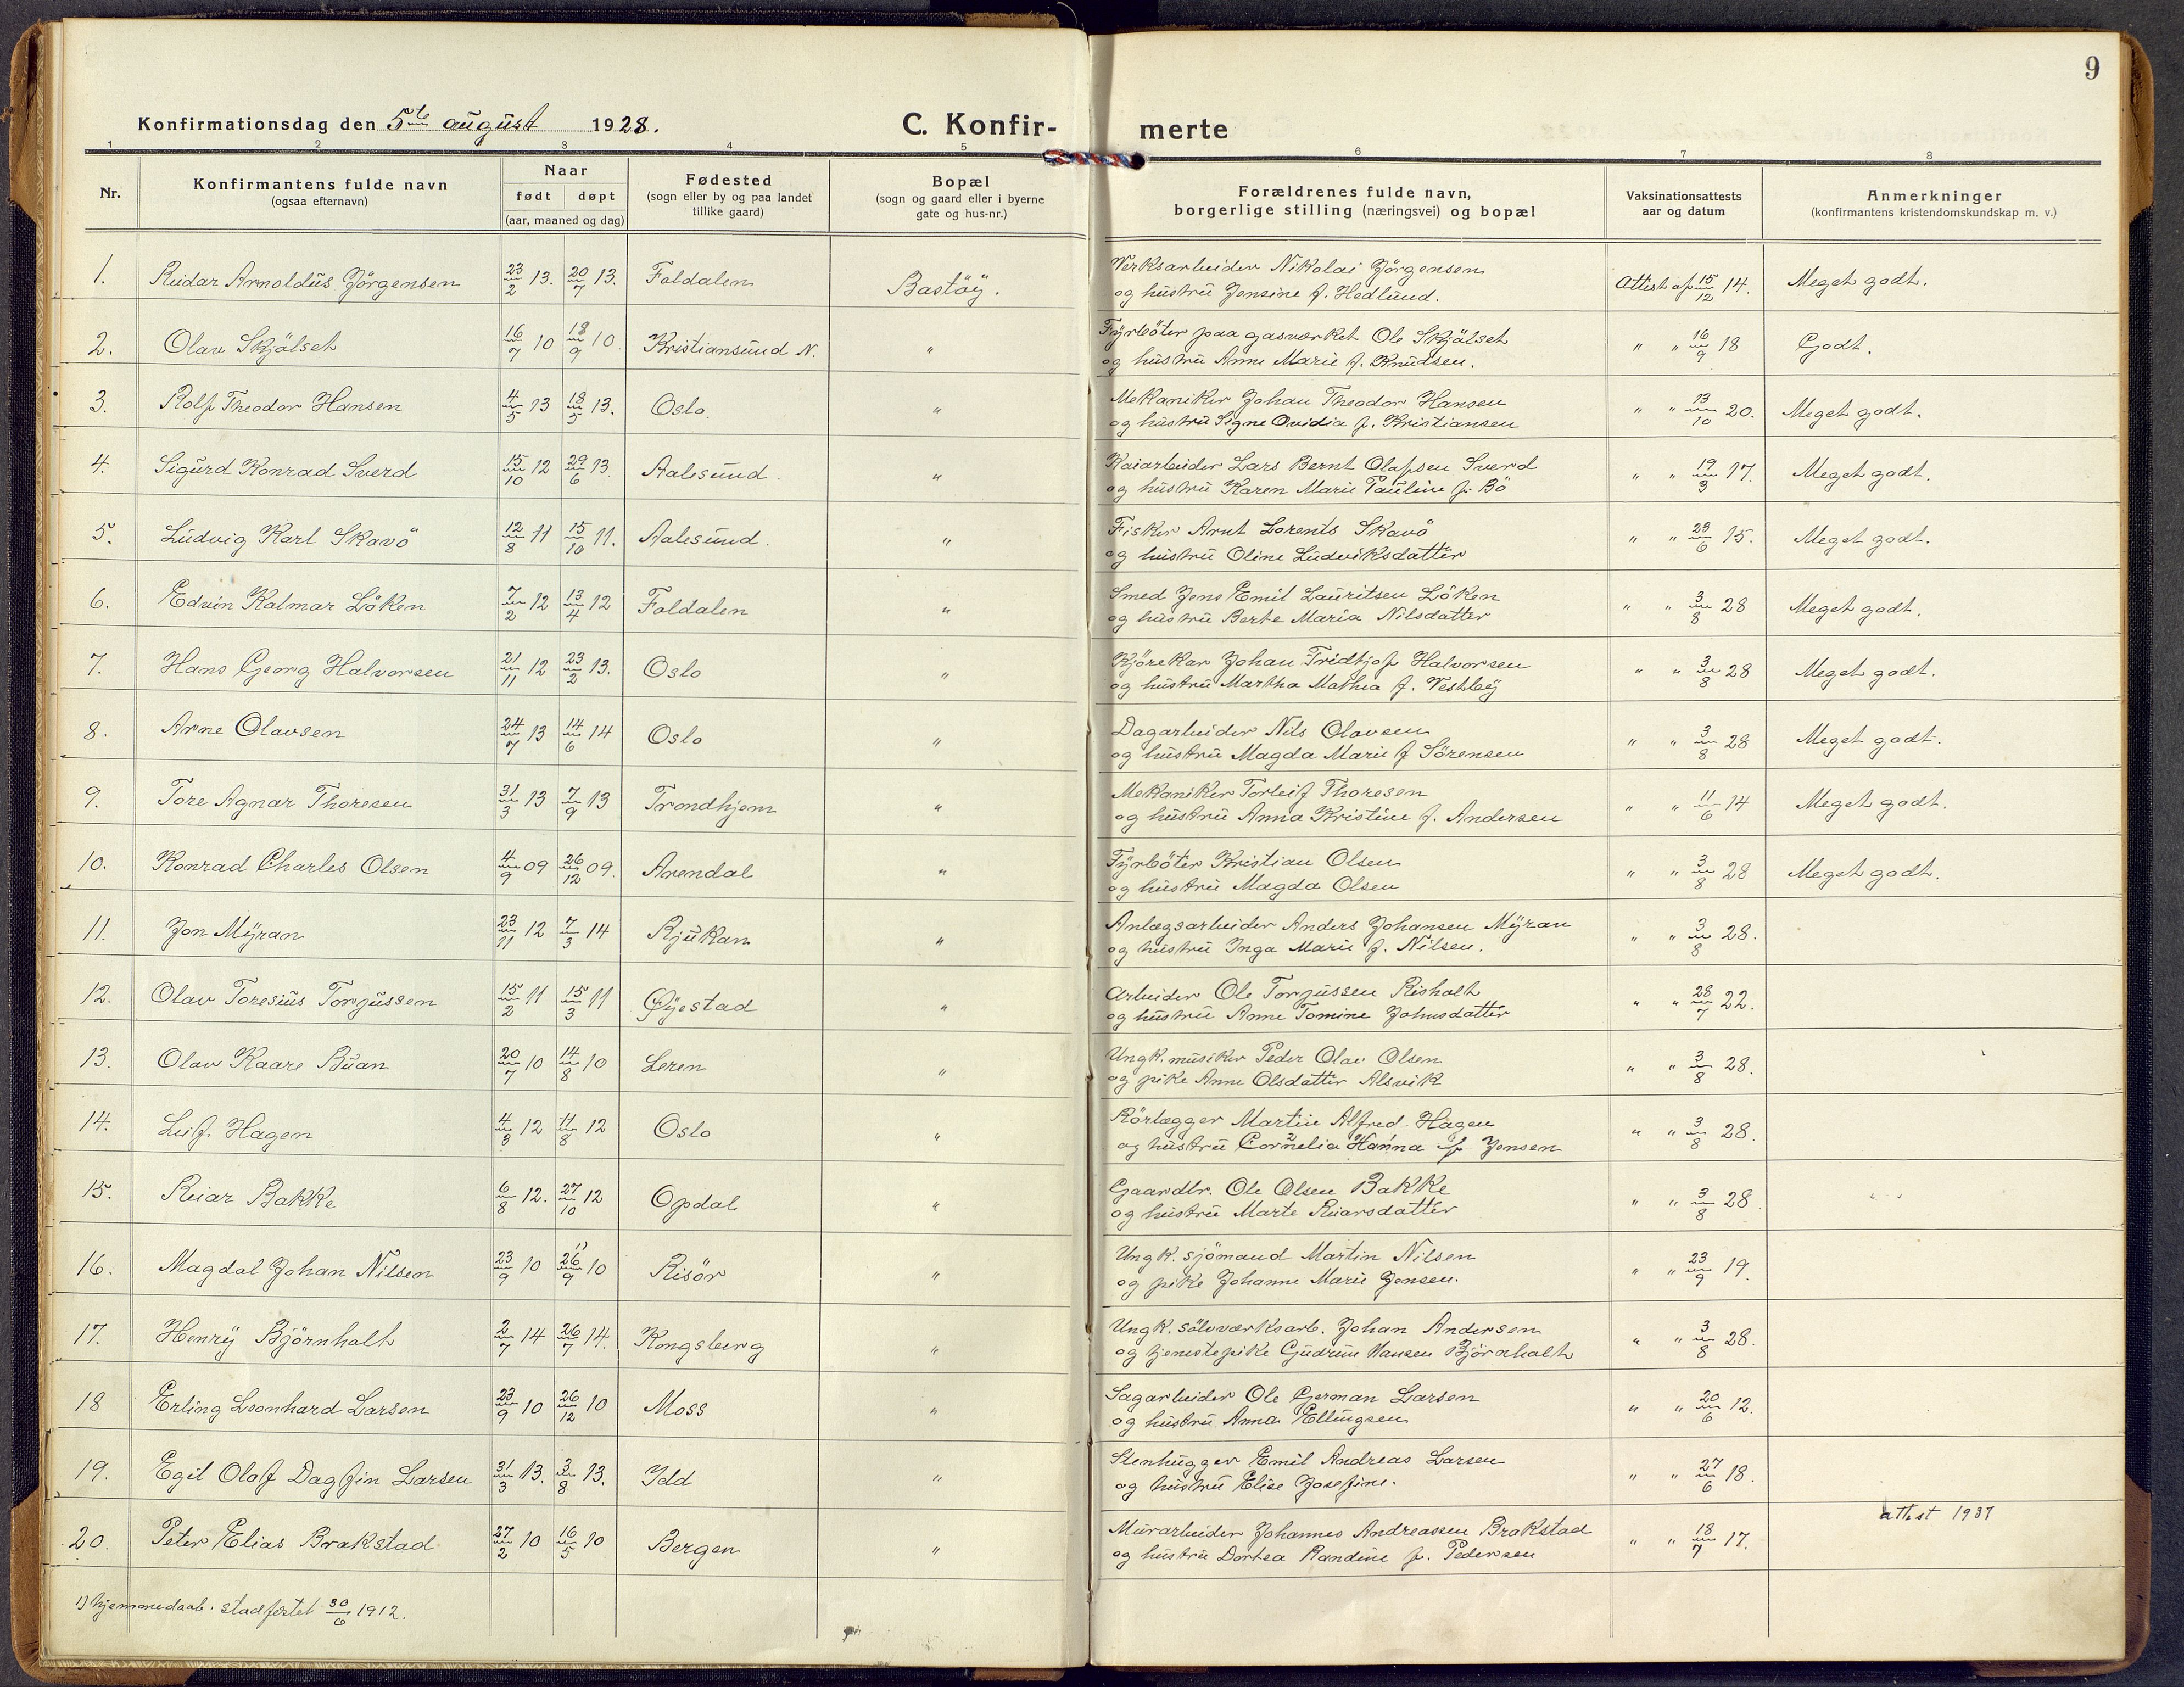 9
Konfirmationsdag den 5te august 1928.
C. Konfir-merte
1 2 3 4 5 6 7 8
Nr.
Konfirmantens fulde navn
(ogsaa efternavn)
Naar
født døpt
(aar, maaned og dag)
Fødested
(sogn eller by og paa landet
tillike gaard)
Bopæl
(sogn og gaard eller i byerne
gate og hus-nr.)
Forældrenes fulde navn,
borgerlige stilling (næringsvei) og bopæl
Vaksinationsattests
aar og datum
Anmerkninger
(konfirmantens kristendomskundskap m. v.)
1. Reidar Arnoldus Jörgensen 23/2 13. 20/7 13. Foldalen Bastöy. Verksarbeider Nikolai Jörgensen Attest af 15/12 14. Meget godt.
og hustru Jensine f. Hedlund.
2. Olav Skjölset 16/7 10 18/9 10 Kristiansund N. " Fyrböter paa gasverket Ole Skjölset " " 16/9 18 Godt.
og hustru Anne Marie f. Knudsen.
3. Rolf Theodor Hansen 4/5 13 18/5 13. Oslo. " Mekaniker Johan Theodor Hansen " " 13/10 20. Meget godt.
og hustru Signe Ovidia f. Kristiansen
4. Sigurd Konrad Sverd 15/10 12 29/6 13 Aalesund. " Kaiarbeider Lars Bernt Olafsen Sverd " " 19/3 17. Meget godt.
og hustru Karen Marie Pauline f. Bö
5. Ludvig Karl Skavö 12/8 11 15/10 11. Aalesund. " Fisker Arnt Lorents Skavö " " 28/6 15. Meget godt.
og hustru Oline Ludviksdatter
6. Edvin Kalmar Löken 7/2 12 13/4 12 Foldalen " Smed Jens Emil Lauritsen Löken " " 3/8 28 Meget godt.
og hustru Berte Maria Nilsdatter
7. Hans Georg Halvorsen 21/11 12 23/2 13. Oslo " Kjörekar Johan Fridtjof Halvorsen " " 3/8 28 Meget godt.
og hustru Martha Mathea f. Vestby
8. Arne Olavsen 24/7 13 14/6 14 Oslo " Dagarbeider Nils Olavsen " " 3/8 28 Meget godt.
og hustru Magda Marie f Sörensen
9. Tore Agnar Thoresen 31/3 13 7/9 13 Trondhjem " Mekaniker Torleif Thoresen " " 11/6 14 Meget godt.
og hustru Anna Kristine f. Andersen
10. Konrad Charles Olsen 4/9 09 26/12 09. Arendal " Fyrböter Kristian Olsen " " 3/8 28 Meget godt.
og hustru Magda Olsen
11. Jon Myran 23/11 12 7/3 14 Rjukan " Anlægsarbeider Anders Johansen Myran " " 3/8 28.
og hustru Inga Marie f. Nilsen.
12. Olav Toresius Torjussen 15/2 11 15/3 11 Øyestad " Arbeider Ole Torjussen Risholt " " 28/7 22.
og hustru Anne Tomine Johnsdatter
13. Olav Kaare Buan 20/7 10 14/8 10 Leren " Ungk. musiker Peder Olav Olsen " " 3/8 28.
og pike Anne Olsdatter Alsvik
14. Leif Hagen 4/3 12 11/8 12 Oslo " Rörlægger Martin Alfred Hagen " " 3/8 28.
og hustru Cornelia Hanna f. Jensen
15. Reiar Bakke 6/8 12. 27/10 12 Opdal " Gaardbr. Ole Olsen Bakke " " 3/8 28.
og hustru Marte Reiarsdatter
16. Magdal Johan Nilsen 23/9 10 1) 26/9 10 Risör " Ungk. sjömand Martin Nilsen " " 23/9 19.
og pike Johanne Marie Jensen.
17. Henry Björnholt 2/7 14 26/7 14. Kongsberg " Ungk. sölvverksarb. Johan Andersen " " 3/8 28.
og tjenestepike Gudrun Hansen Björnholt
18 Erling Leonhard Larsen 23/9 10 26/12 10 Moss " Sagarbeider Ole German Larsen " " 20/6 12.
og hustru Anna Ellingsen
19. Egil Olaf Dagfin Larsen 31/3 13. 3/8 13. Idd " Stenhugger Emil Andreas Larsen " " 27/6 18.
og hustru Elise Josefine.
20. Peter Elias Brakstad 27/2 10 16/5 10 Bergen " Murarbeider Johannes Andreassen Brakstad " " 18/7 17. attest 1937
og hustru Dortea Randine f. Pedersen
1) hjemmedaab. stadfestet 30/6 1912.